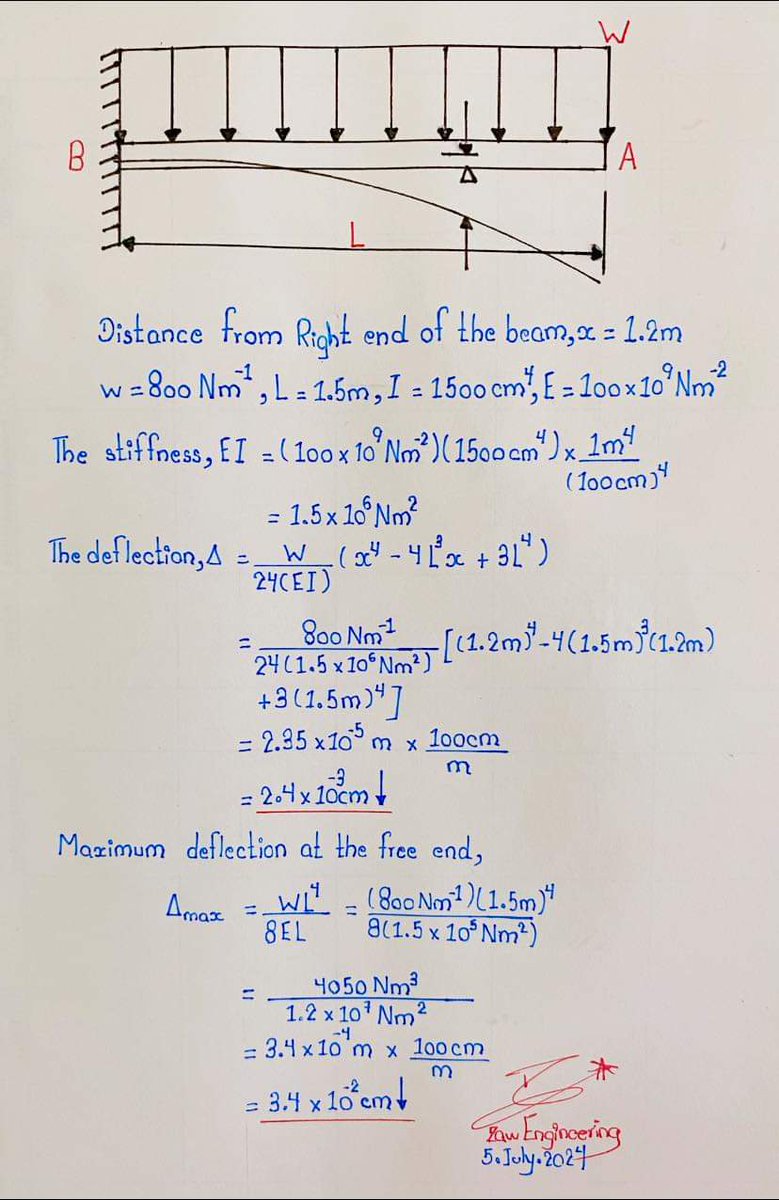 W
B
A
Δ
L
Distance from Right end of the beam, x = 1.2m
w = 800 Nm⁻¹, L = 1.5m, I = 1500 cm⁴, E = 100 × 10⁹ Nm⁻²
The stiffness, EI = (100 × 10⁹ Nm⁻²)(1500 cm⁴) × 1m⁴ / (100cm)⁴
= 1.5 × 10⁶ Nm²
The deflection, Δ = W / 24(EI) (x⁴ - 4L³x + 3L⁴)
= 800 Nm⁻¹ / 24(1.5 × 10⁶ Nm²) [(1.2m)⁴ - 4(1.5m)³(1.2m)
+3(1.5m)⁴]
= 2.35 × 10⁻⁵ m × 100cm / m
= 2.4 × 10⁻³ cm ↓
Maximum deflection at the free end,
Δmax = WL⁴ / 8EL = (800 Nm⁻¹)(1.5m)⁴ / 8(1.5 × 10⁵ Nm²)
= 4050 Nm³ / 1.2 × 10⁷ Nm²
= 3.4 × 10⁻⁴ m × 100cm / m
= 3.4 × 10⁻² cm ↓
Zaw Engineering
5.July.2024